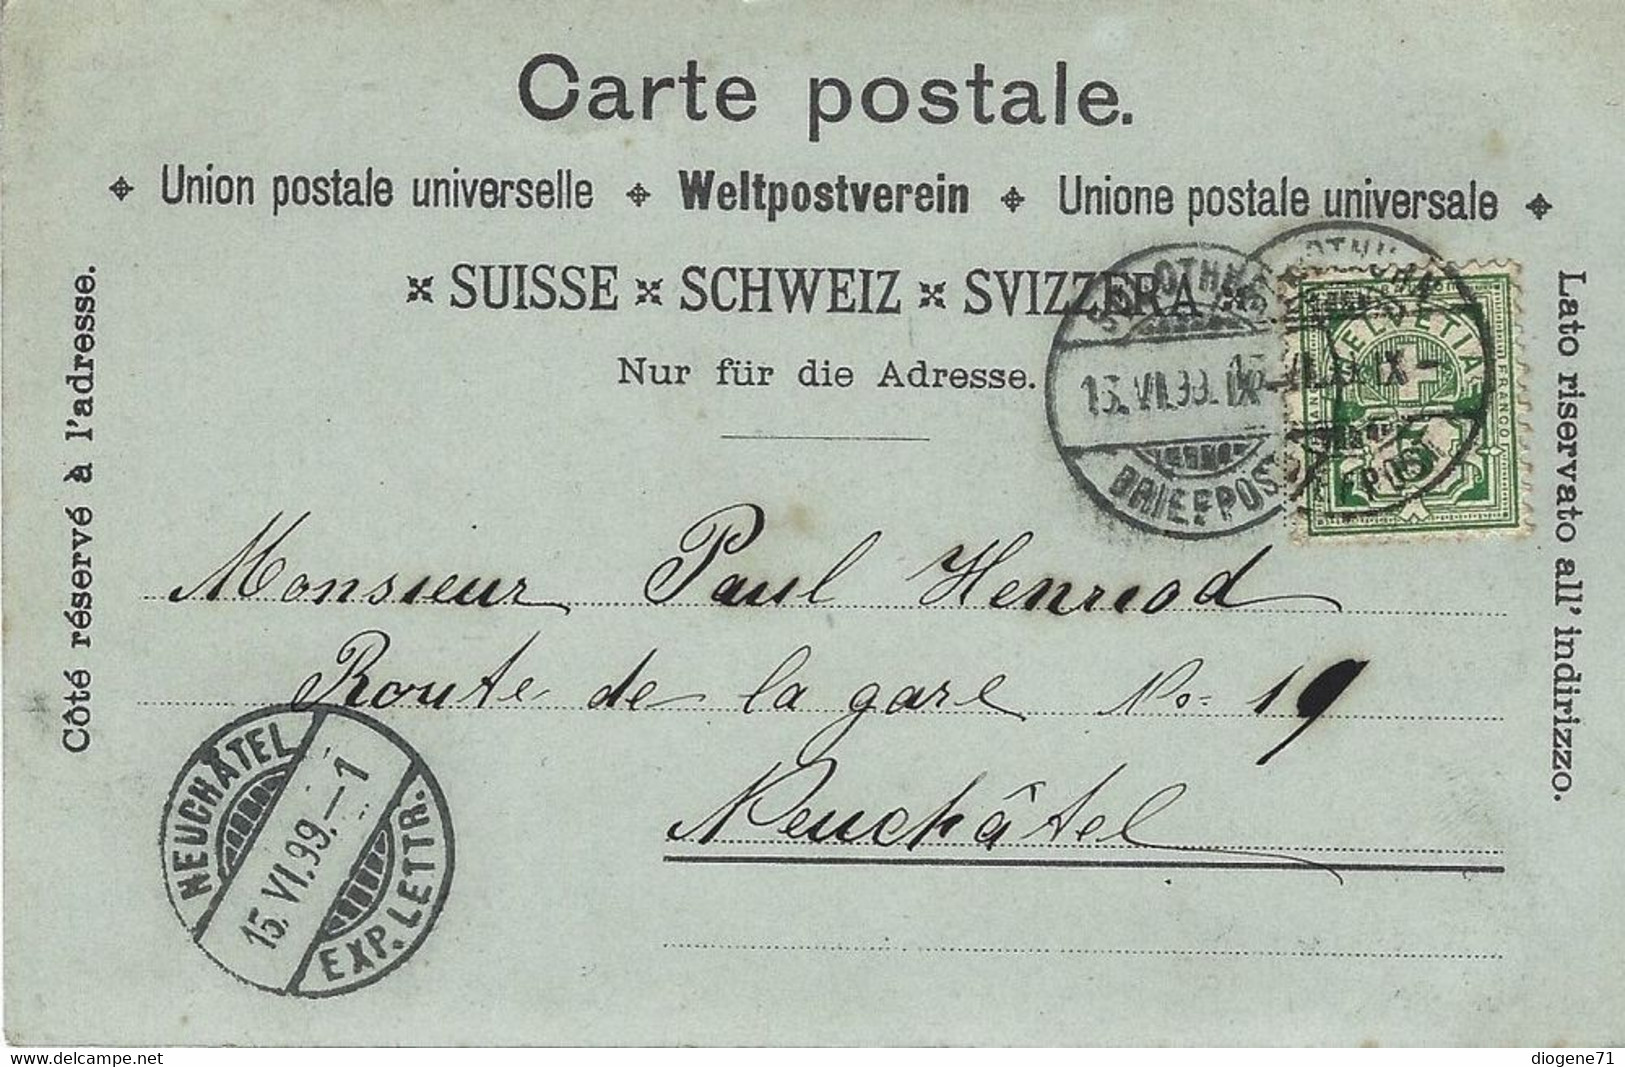 Carte postale.
Union postale universelle Weltpostverein Unione postale universale
SUISSE SCHWEIZ SVIZZERA
Nur für die Adresse.
Côté réservé à l'adresse.
Lato riservato all' indirizzo.
BRIEFPOST
HELVETIA
FRANCO
5
Monsieur Paul Henriod
Route de la gare No= 19
Neuchâtel
NEUCHÂTEL
15.VI.99.–1
EXP. LETTR.
diogene71